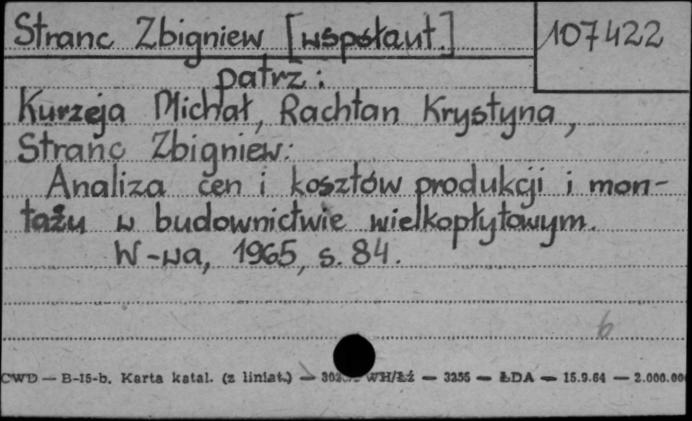 Stranc Zbigniew [współaut.]
107422
patrz:
Kurzeja Michał, Rachtan Krystyna,
Stranc Zbigniew:
Analiza cen i kosztów produkcji i mon-
tażu w budownictwie wielkopłytowym.
W-wa, 1965, s. 84.
b
CWD — B-15-b. Karta katal. (z liniat.) — WH/Łź — 3255 — ŁDA — 15.9.64 — 2.000.00